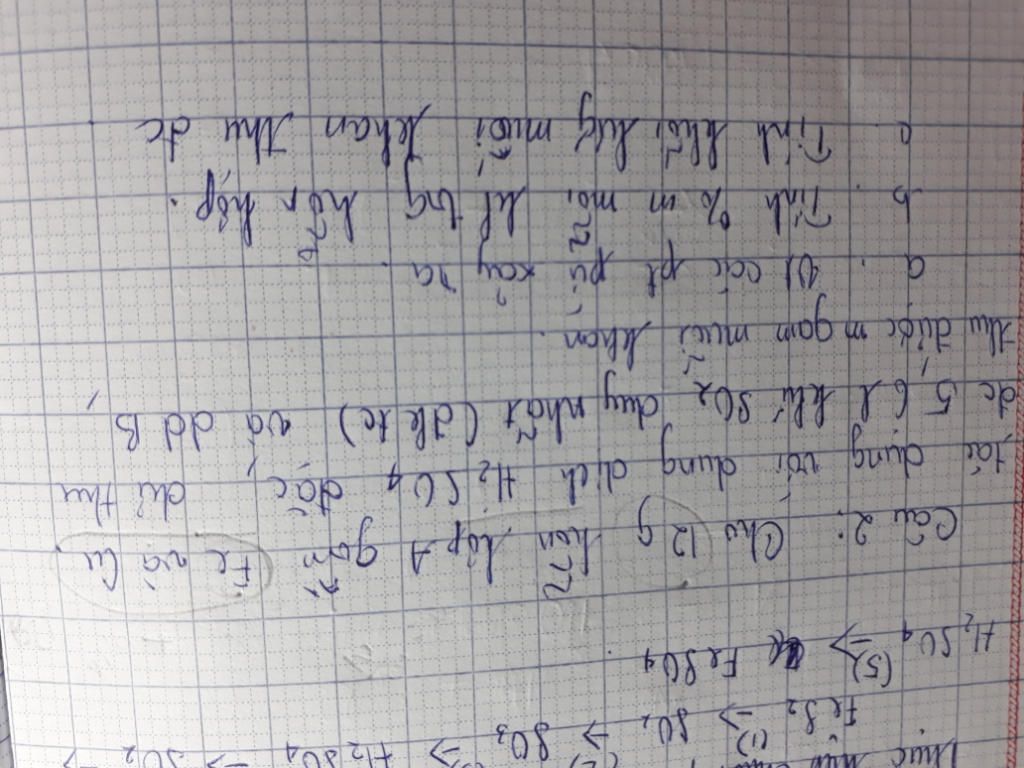 FeS₂ (1)→ SO₂ → SO₃ → H₂SO₄ → SO₂ →
H₂SO₄ (5)→ FeSO₄
Câu 2: Cho 12 g hỗn hợp A gồm Fe và Cu
tác dụng với dung dịch H₂SO₄ đặc, dư thu
đc 5,6 l khí SO₂ duy nhất (đktc) và dd B,
thu được m gam muối khan.
a. Vt các pt pứ xảy ra.
b. Tính % m mỗi kl trg hỗn hợp.
c. Tính khối lượg muối khan thu đc